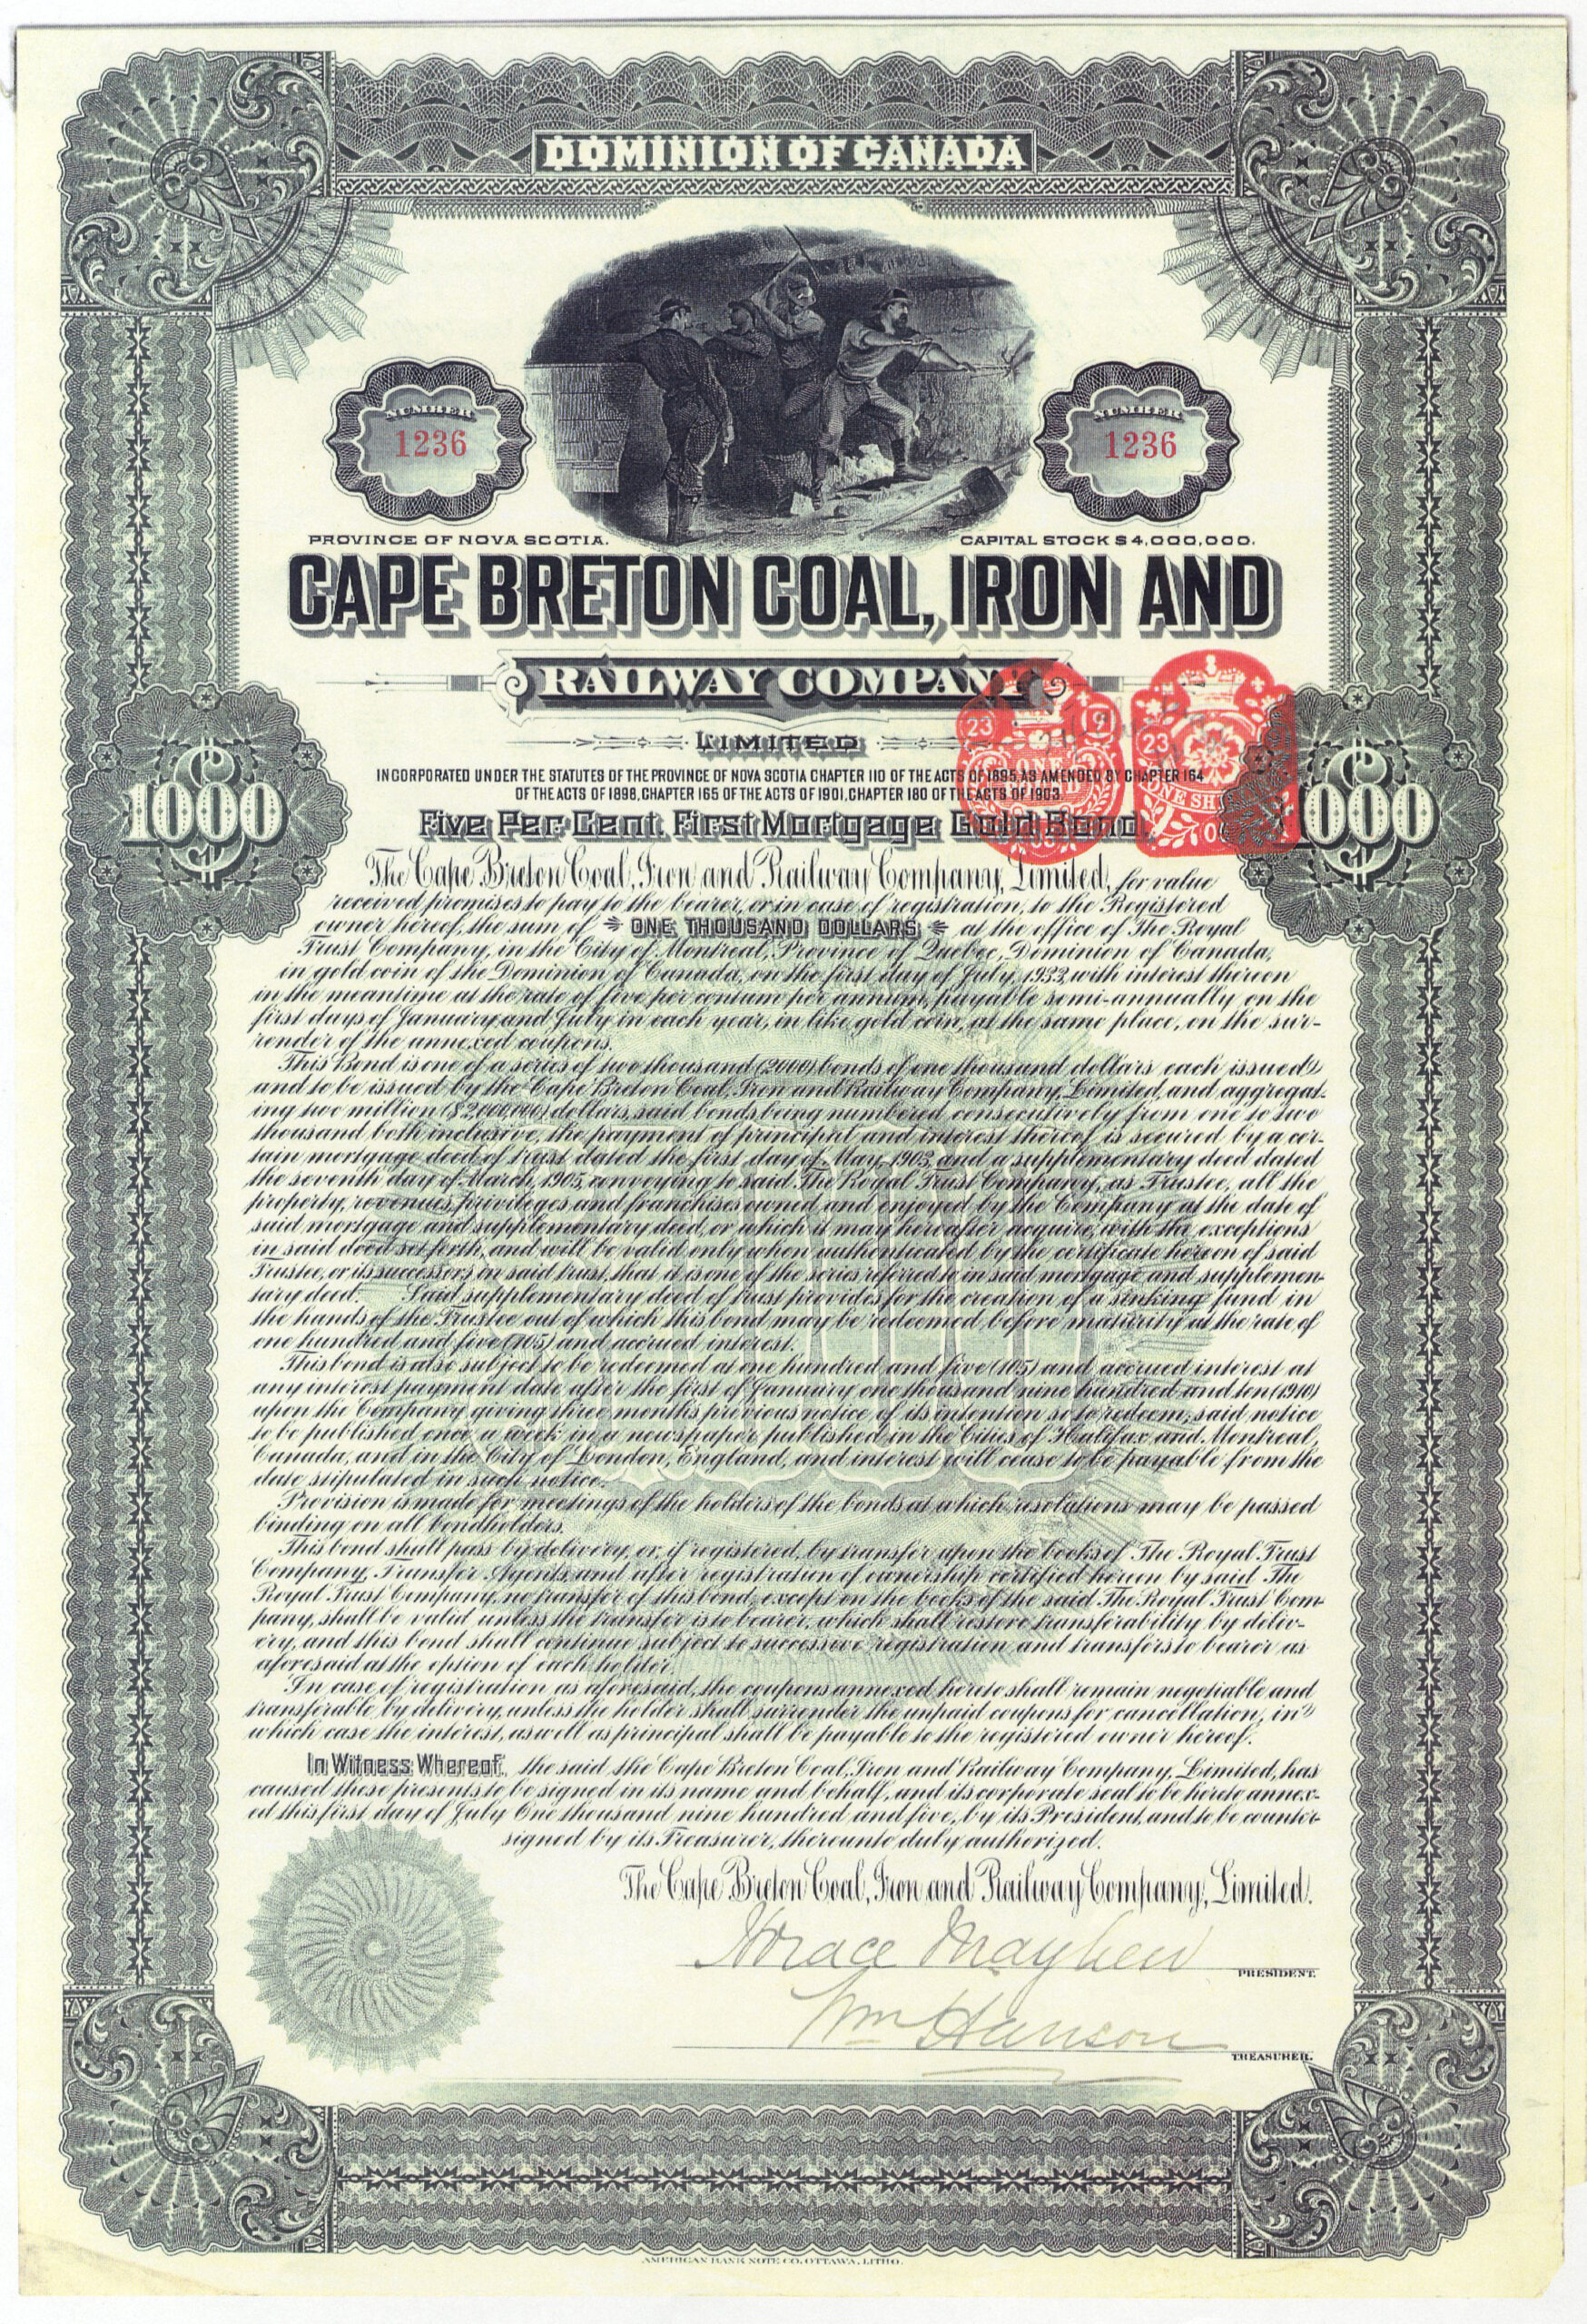 DOMINION OF CANADA
NUMBER
1236
NUMBER
1236
PROVINCE OF NOVA SCOTIA.
CAPITAL STOCK $4,000,000.
CAPE BRETON COAL, IRON AND
RAILWAY COMPANY
LIMITED
INCORPORATED UNDER THE STATUTES OF THE PROVINCE OF NOVA SCOTIA CHAPTER 110 OF THE ACTS OF 1895, AS AMENDED BY CHAPTER 164
OF THE ACTS OF 1898, CHAPTER 165 OF THE ACTS OF 1901, CHAPTER 180 OF THE ACTS OF 1903.
$1000
$1000
Five Per Cent. First Mortgage Gold Bond.
The Cape Breton Coal, Iron and Railway Company, Limited, for value
received promises to pay to the bearer, or in case of registration, to the Registered
owner hereof, the sum of ONE THOUSAND DOLLARS at the office of The Royal
Trust Company, in the City of Montreal, Province of Quebec, Dominion of Canada,
in gold coin of the Dominion of Canada, on the first day of July, 1933, with interest thereon
in the meantime at the rate of five per centum per annum, payable semi-annually on the
first days of January and July in each year, in like gold coin, at the same place, on the sur-
render of the annexed coupons.
This Bond is one of a series of two thousand (2000) bonds of one thousand dollars each issued
and to be issued by the Cape Breton Coal, Iron and Railway Company, Limited, and aggregat-
ing two million ($2,000,000) dollars, said bonds being numbered consecutively from one to two
thousand both inclusive, the payment of principal and interest thereof is secured by a cer-
tain mortgage deed of trust dated the first day of May, 1903, and a supplementary deed dated
the seventh day of March, 1905, conveying to said The Royal Trust Company, as Trustee, all the
property, revenues, privileges and franchises owned and enjoyed by the Company at the date of
said mortgage and supplementary deed, or which it may hereafter acquire, with the exceptions
in said deed set forth, and will be valid only when authenticated by the certificate hereon of said
Trustee, or its successors in said trust, that it is one of the series referred to in said mortgage and supplemen-
tary deed. Said supplementary deed of trust provides for the creation of a sinking fund in
the hands of the Trustee out of which this bond may be redeemed before maturity at the rate of
one hundred and five (105) and accrued interest.
This bond is also subject to be redeemed at one hundred and five (105) and accrued interest at
any interest payment date after the first of January one thousand nine hundred and ten (1910)
upon the Company giving three months previous notice of its intention so to redeem, said notice
to be published once a week in a newspaper published in the Cities of Halifax and Montreal,
Canada, and in the City of London, England, and interest will cease to be payable from the
date stipulated in such notice.
Provision is made for meetings of the holders of the bonds at which resolutions may be passed
binding on all bondholders.
This bond shall pass by delivery, or, if registered, by transfer upon the books of The Royal Trust
Company, Transfer Agents, and after registration of ownership certified hereon by said The
Royal Trust Company, no transfer of this bond, except on the books of the said The Royal Trust Com-
pany, shall be valid unless the transfer is to bearer, which shall restore transferability by deliv-
ery, and this bond shall continue subject to successive registration and transfers to bearer as
aforesaid at the option of each holder.
In case of registration as aforesaid, the coupons annexed hereto shall remain negotiable and
transferable by delivery, unless the holder shall surrender the unpaid coupons for cancellation, in
which case the interest, as well as principal shall be payable to the registered owner hereof.
In Witness Whereof, the said the Cape Breton Coal, Iron and Railway Company, Limited, has
caused these presents to be signed in its name and behalf, and its corporate seal to be hereto annex-
ed this first day of July One thousand nine hundred and five, by its President, and to be counter-
signed by its Treasurer, thereunto duly authorized.
The Cape Breton Coal, Iron and Railway Company, Limited.
Horace Mayhew
PRESIDENT.
Wm Hanson
TREASURER.
AMERICAN BANK NOTE CO. OTTAWA, LITHO.